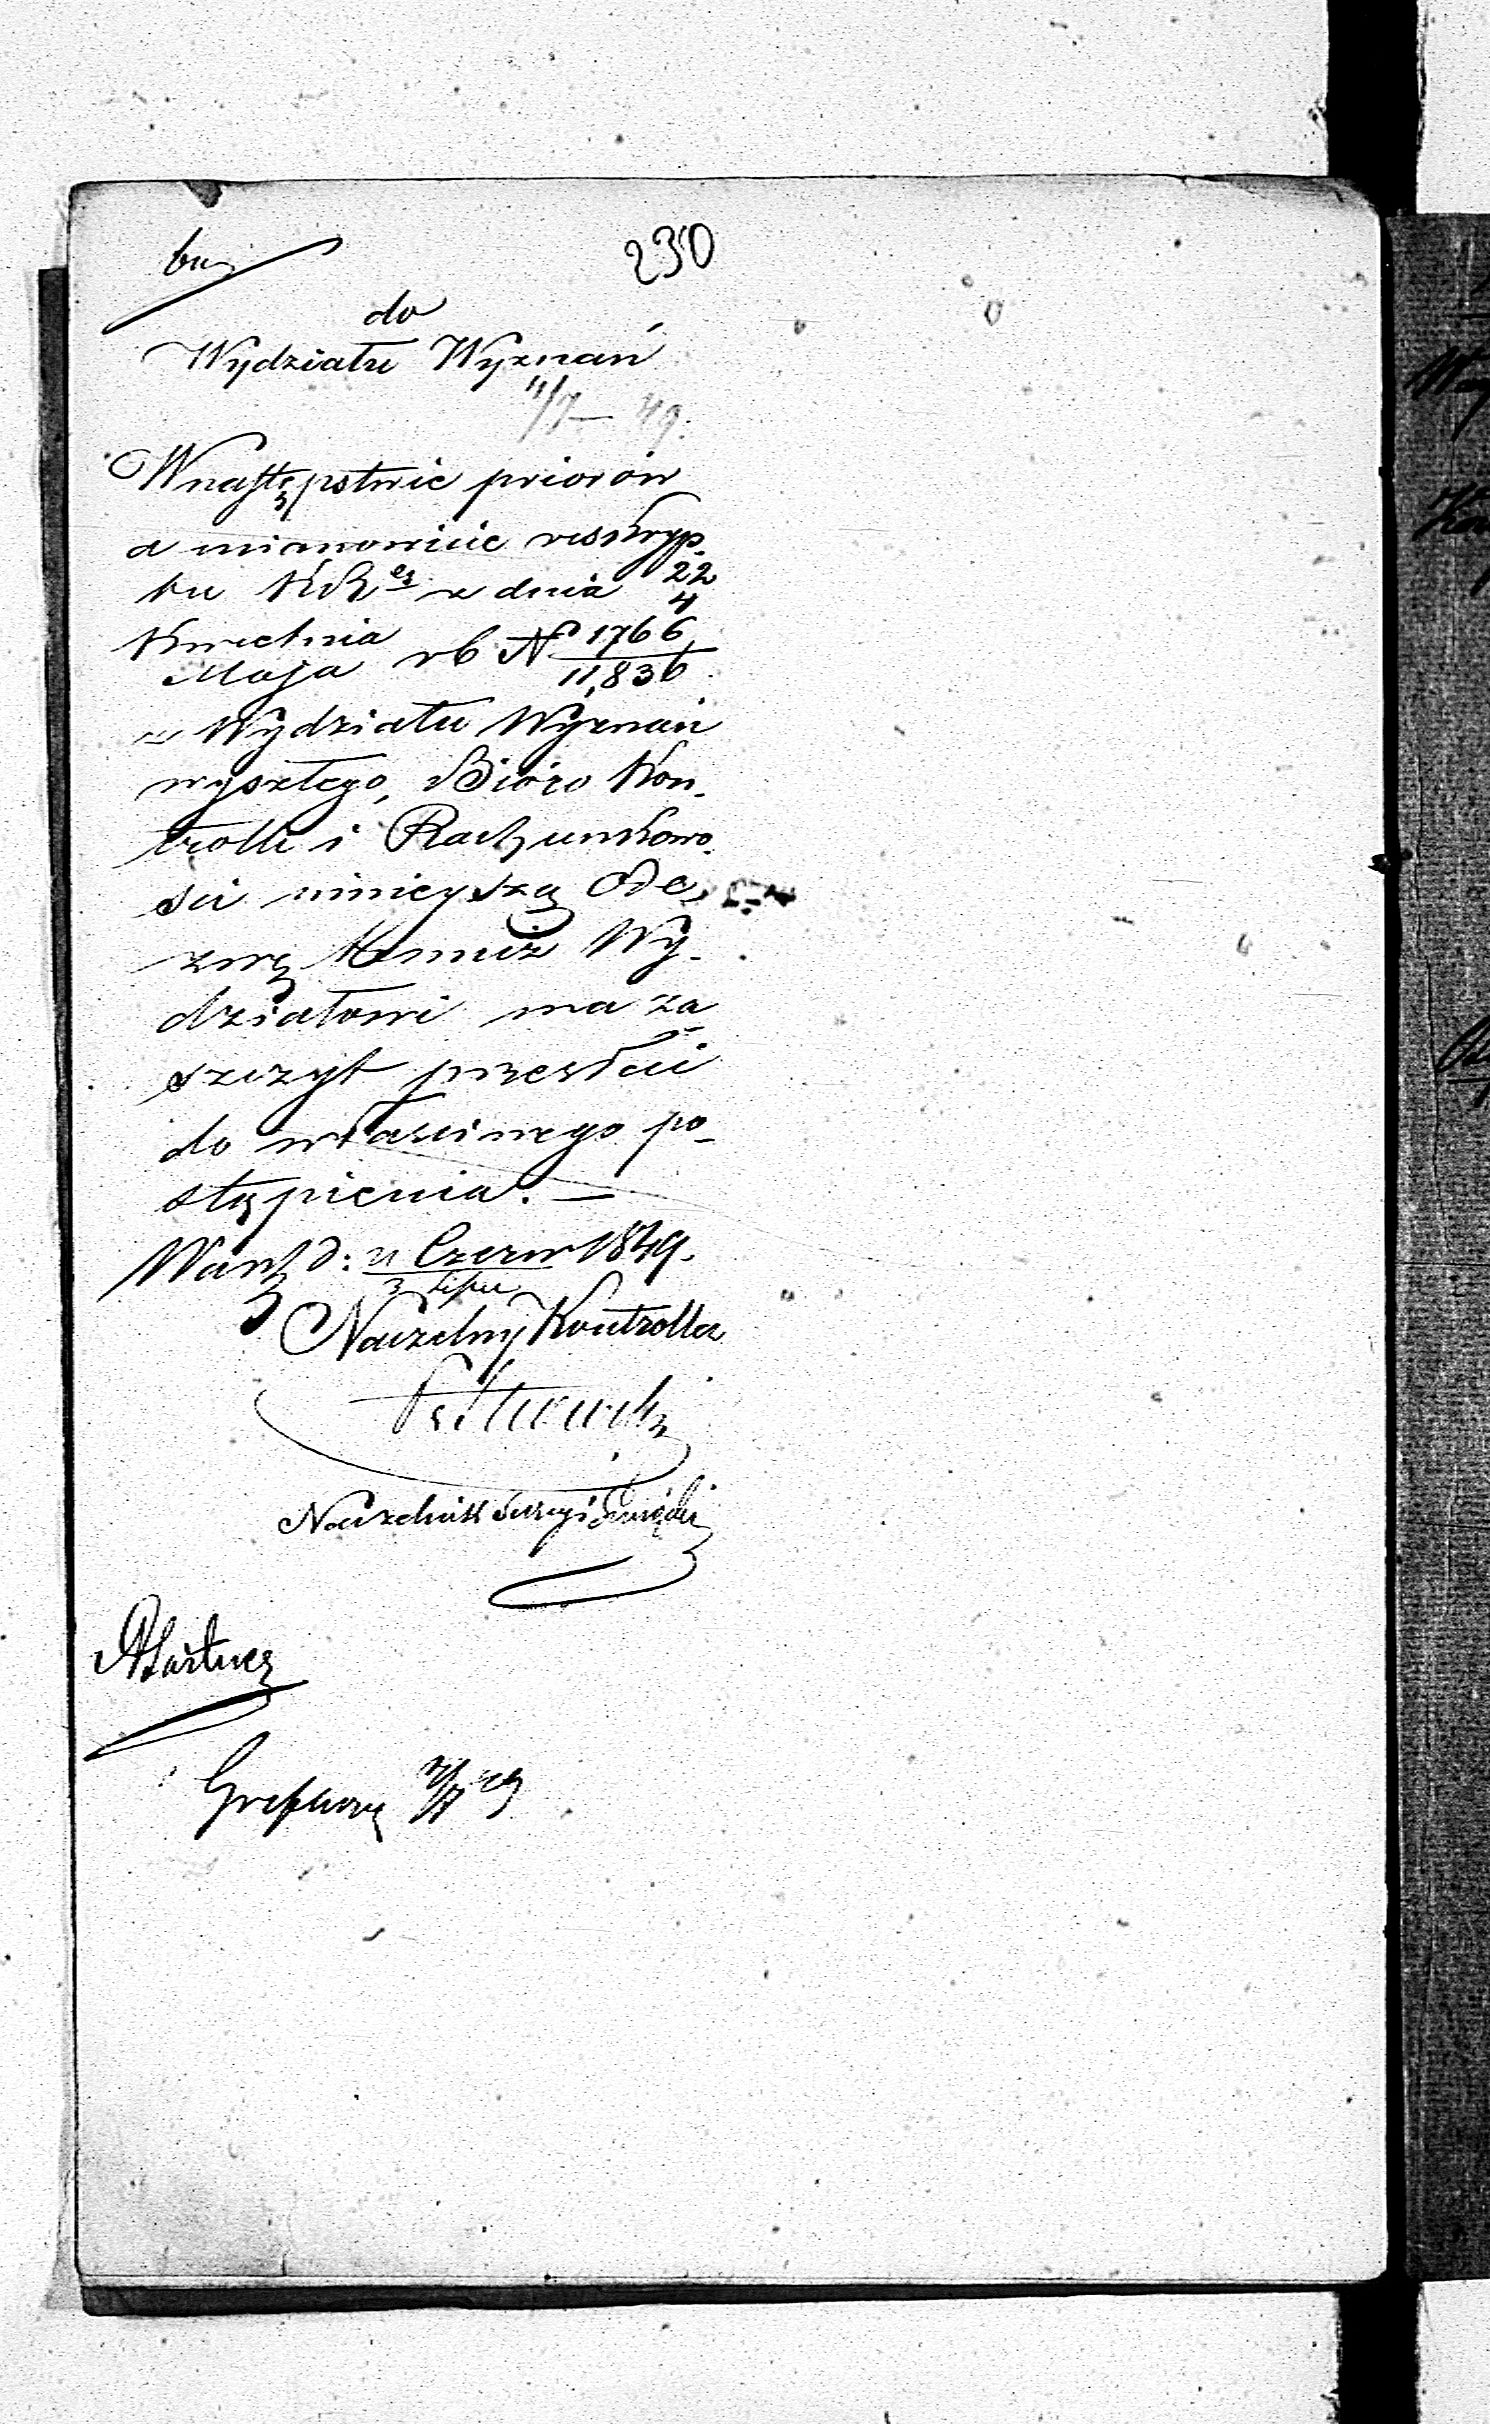 230
do
Wydziału Wyznań
11/7 – 49.
W następstwie priorów
a mianowicie reskryp-
tu KR z dnia 22
4
Kwietnia
Maja rb N° 1766
11,836
z Wydziału Wyznań
wyszłego, Bióro Kon-
trolli i Rachunkowo-
ści niniejszą Ode-
zwę temuż Wy-
działowi ma za
szczyt przesłać
do właściwego po-
stąpienia. —
Warsz d: 21 Czerw 1849.
3 Lipca
Naczelny Kontroller
Naczelnik Sekcyi